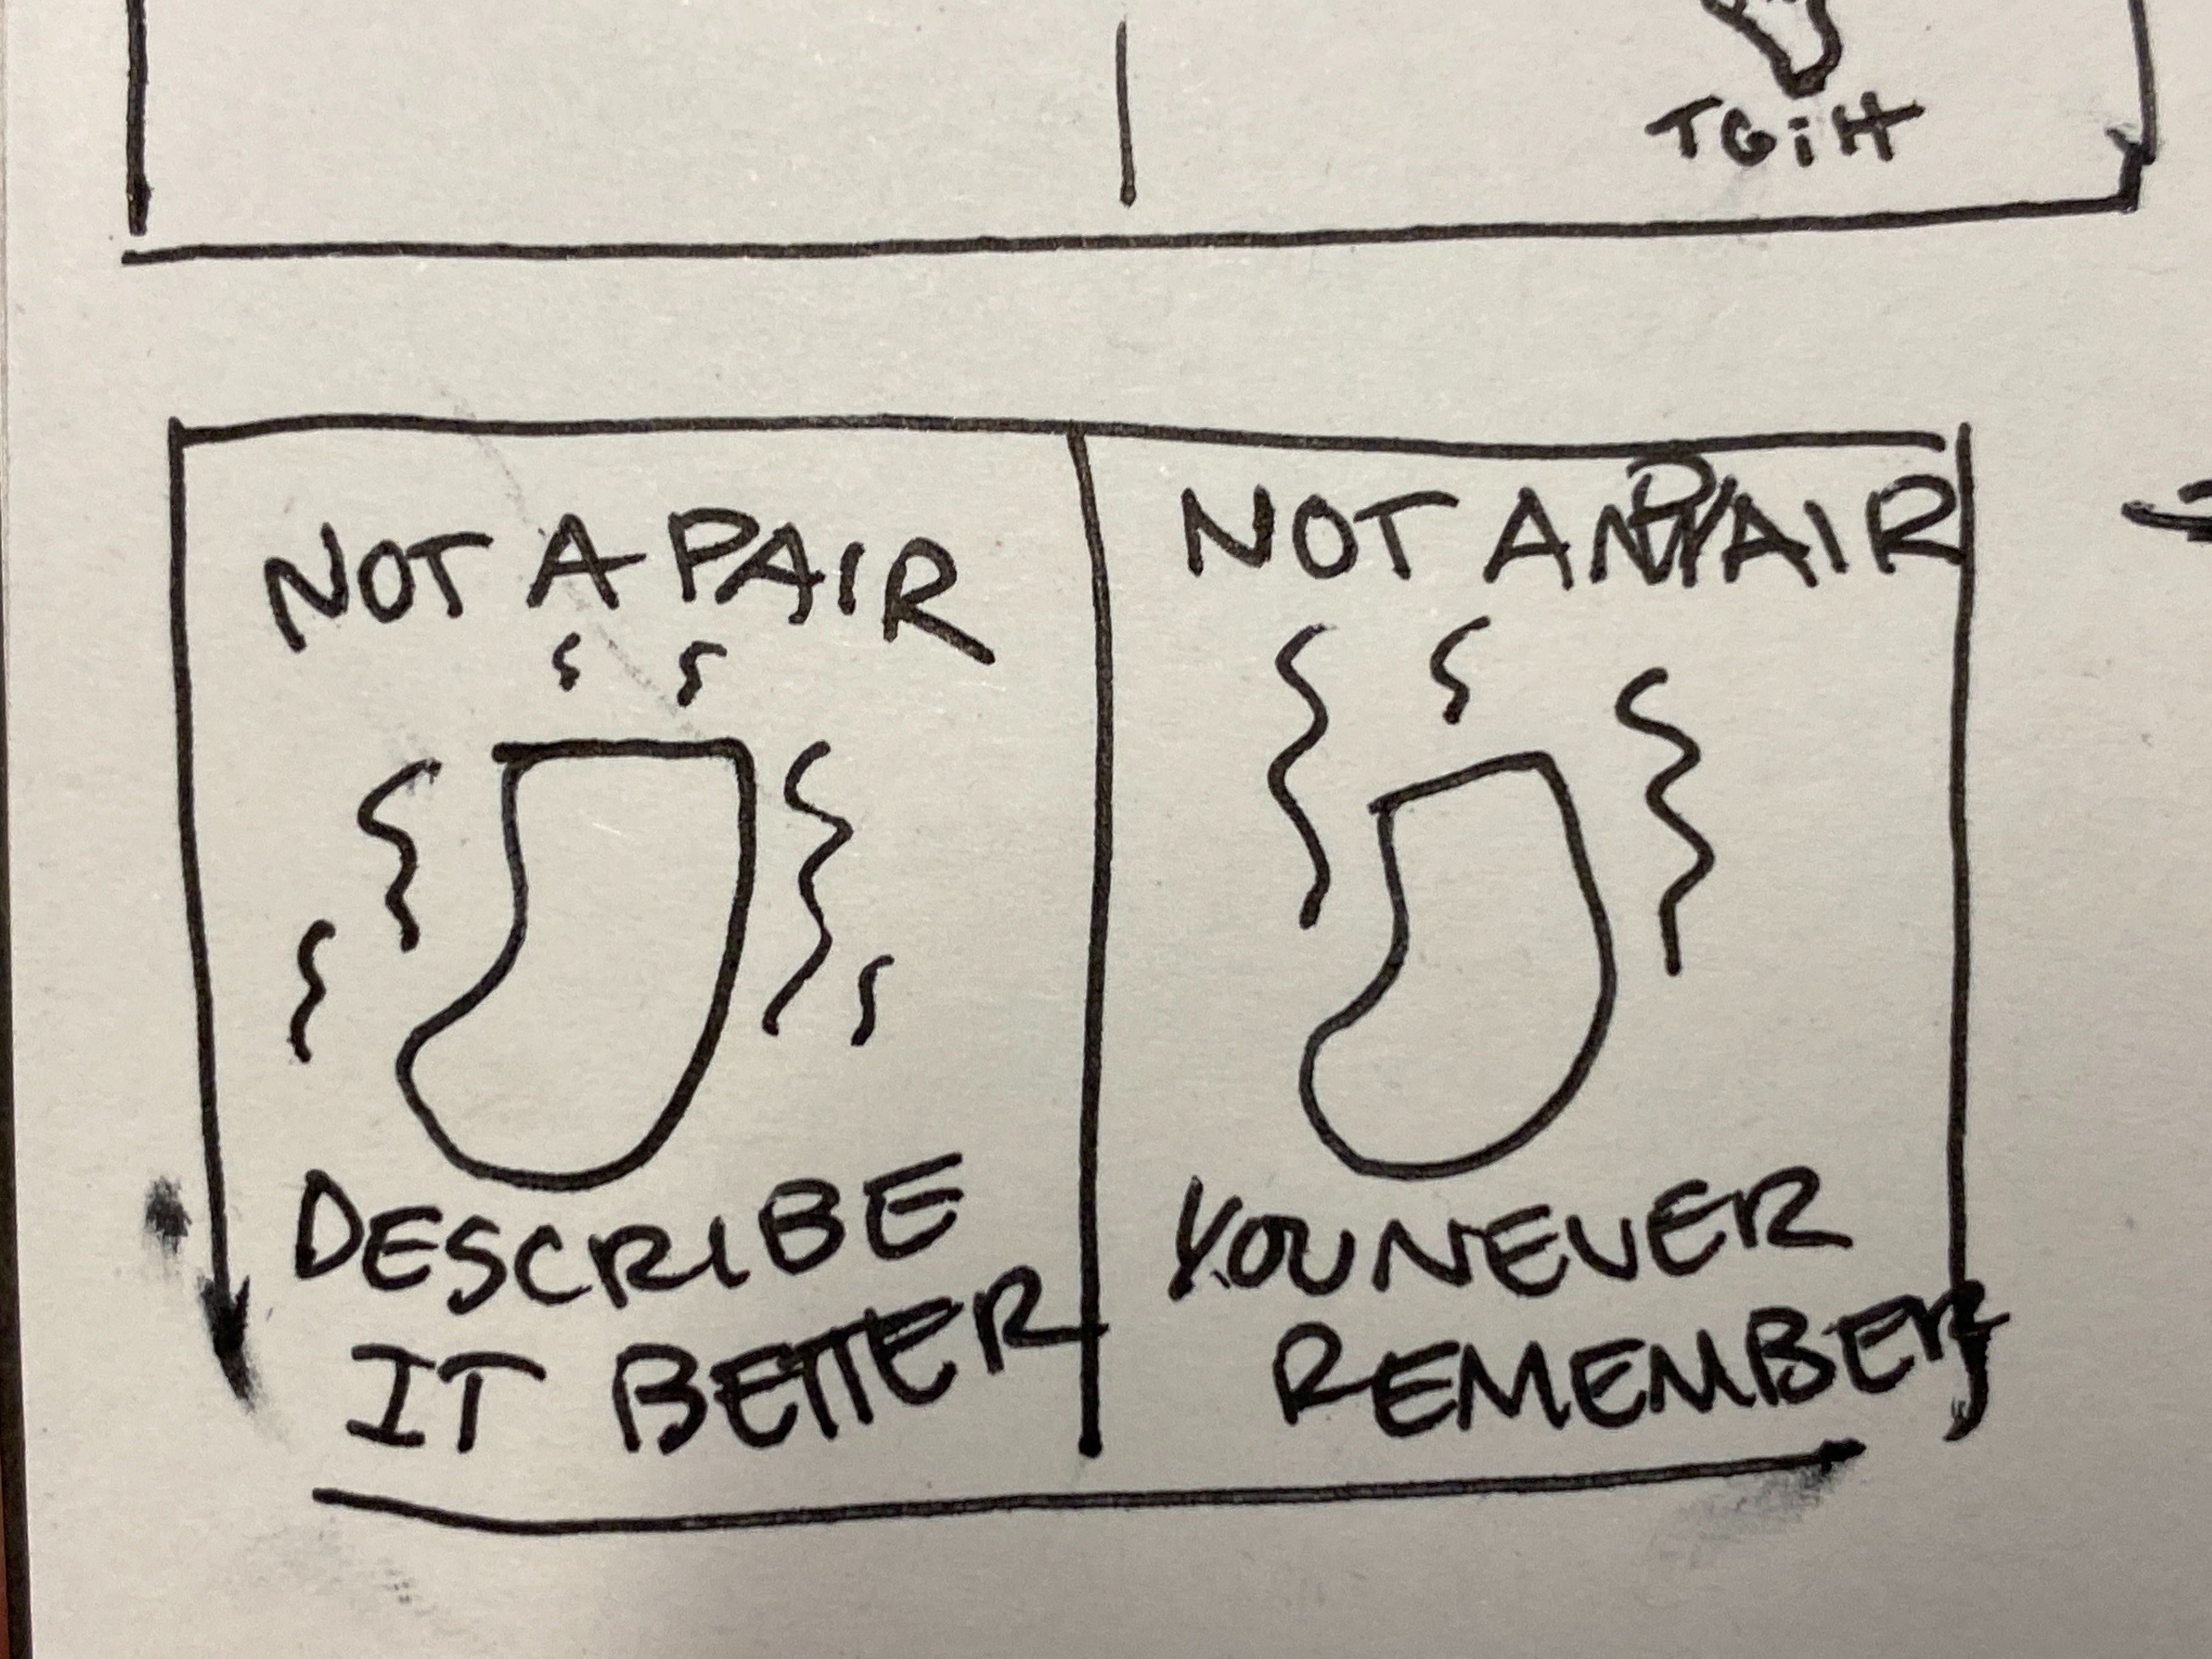 TGiH
NOT A PAIR
DESCRIBE
IT BETTER
NOT A PAIR
YOU NEVER
REMEMBER